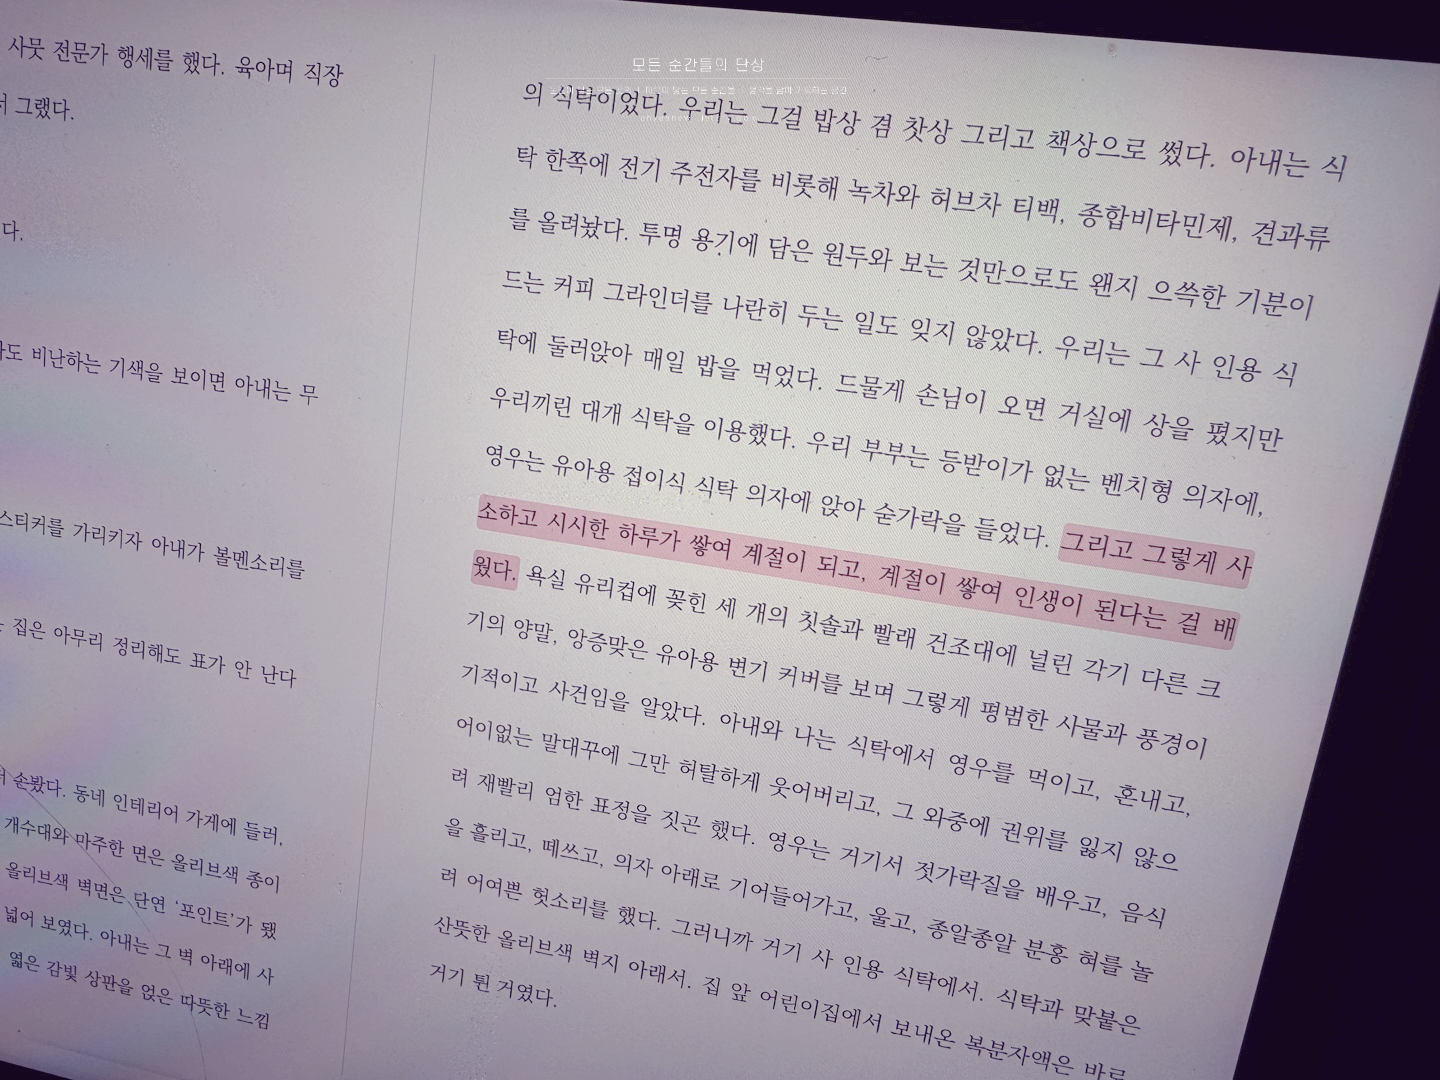 모든 순간들의 단상
사뭇 전문가 행세를 했다. 육아며 직장
그랬다.
다.
비난하는 기색을 보이면 아내는 무
스티커를 가리키자 아내가 볼멘소리를
집은 아무리 정리해도 표가 안 난다
손봤다. 동네 인테리어 가게에 들러,
개수대와 마주한 면은 올리브색 종이
올리브색 벽면은 단연 ‘포인트’가 됐
넓어 보였다. 아내는 그 벽 아래에 사
엷은 감빛 상판을 얹은 따뜻한 느낌
의 식탁이었다. 우리는 그걸 밥상 겸 찻상 그리고 책상으로 썼다. 아내는 식
탁 한쪽에 전기 주전자를 비롯해 녹차와 허브차 티백, 종합비타민제, 견과류
를 올려놨다. 투명 용기에 담은 원두와 보는 것만으로도 왠지 으쓱한 기분이
드는 커피 그라인더를 나란히 두는 일도 잊지 않았다. 우리는 그 사 인용 식
탁에 둘러앉아 매일 밥을 먹었다. 드물게 손님이 오면 거실에 상을 폈지만
우리끼린 대개 식탁을 이용했다. 우리 부부는 등받이가 없는 벤치형 의자에,
영우는 유아용 접이식 식탁 의자에 앉아 숟가락을 들었다. 그리고 그렇게 사
소하고 시시한 하루가 쌓여 계절이 되고, 계절이 쌓여 인생이 된다는 걸 배
웠다. 욕실 유리컵에 꽂힌 세 개의 칫솔과 빨래 건조대에 널린 각기 다른 크
기의 양말, 앙증맞은 유아용 변기 커버를 보며 그렇게 평범한 사물과 풍경이
기적이고 사건임을 알았다. 아내와 나는 식탁에서 영우를 먹이고, 혼내고,
어이없는 말대꾸에 그만 허탈하게 웃어버리고, 그 와중에 권위를 잃지 않으
려 재빨리 엄한 표정을 짓곤 했다. 영우는 거기서 젓가락질을 배우고, 음식
을 흘리고, 떼쓰고, 의자 아래로 기어들어가고, 울고, 종알종알 분홍 혀를 놀
려 어여쁜 헛소리를 했다. 그러니까 거기 사 인용 식탁에서. 식탁과 맞붙은
산뜻한 올리브색 벽지 아래서. 집 앞 어린이집에서 보내온 복분자액은 바로
거기 튄 거였다.